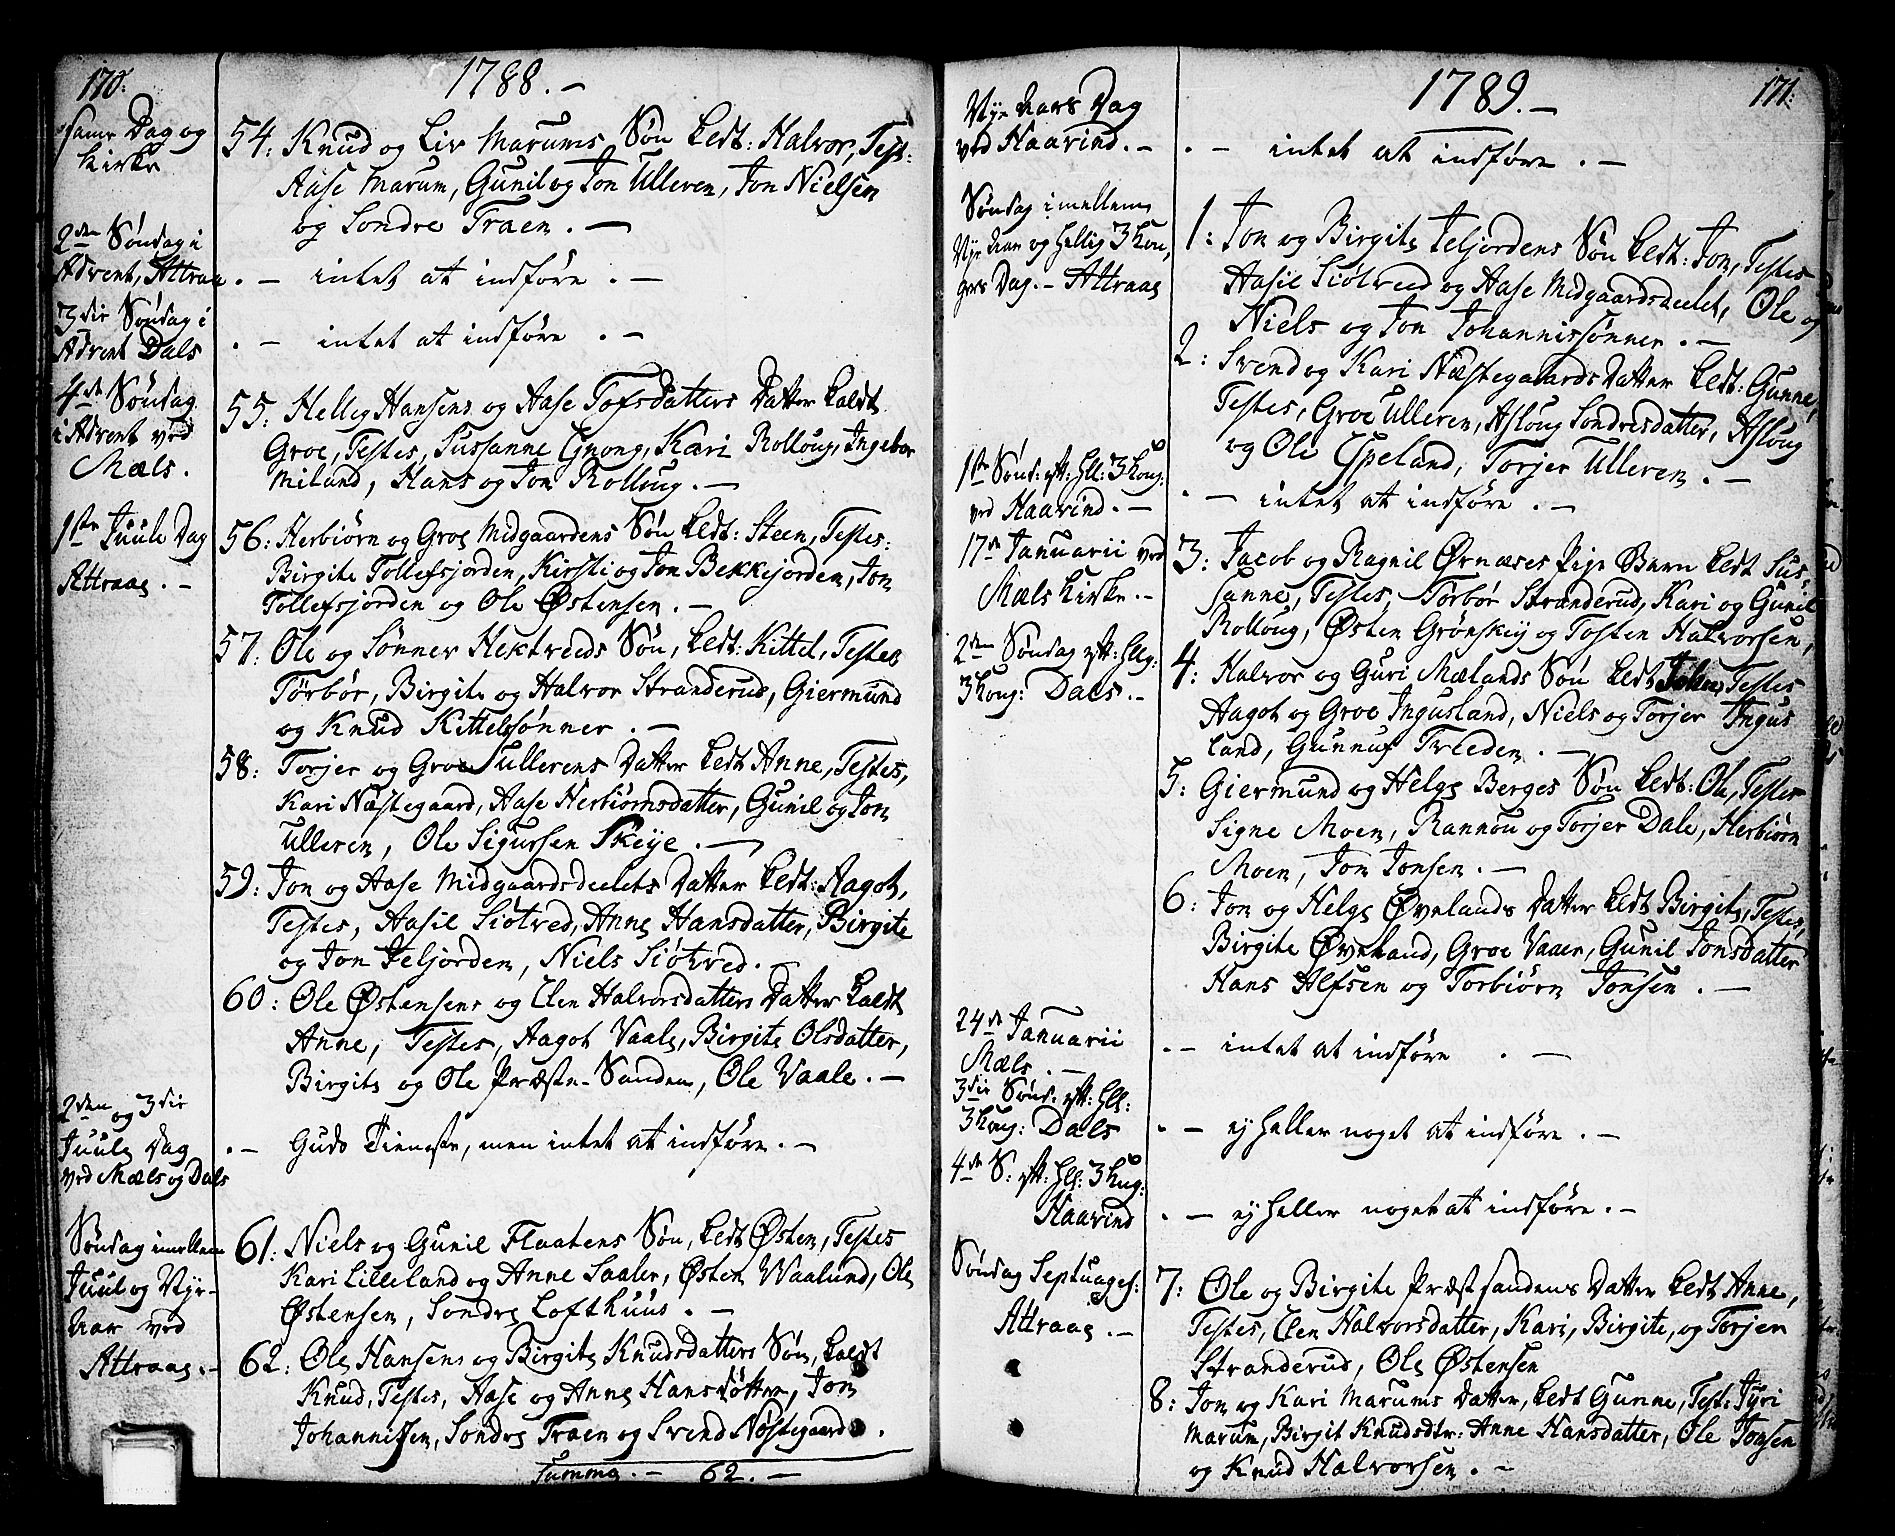 170.
1788. –
same Dag og
Kirke
54: Knud og Liv Marums Søn kedt: Halvor, Test:
Aase Marum, Gunil og Jon Ulleren, Jon Nielsen
og Sondre Traen. –
2den Søndag i
Advent, Attraa
. – intet at indføre . –
3die Søndag i
Advent Dals
. – intet at indføre . –
4de Søndag
i Advent ved
Mæls.
55: Helleg Hansens og Aase Tofsdatters Datter kaldt
Groe, Testes, Sussanne Gnong, Kari Rolloug, Ingebor
Miland, Hans og Jon Rolloug. –
1ste Juule Dag
Attraae. –
56: Herbiørn og Groe Midgaardens Søn kedt: Steen, Testes:
Birgite Tollefsjorden, Kirsti og Jon Bekkejorden, Jon
Tollefsjorden og Ole Østensen. –
57: Ole og Sønner Hektveeds Søn, kedt: Kittel, Testes
Törbør, Birgite og Halvor Stranderud, Giermund
og Knud Kittelsønner. –
58: Torjer og Groe Sullerens Datter kedt Anne, Testes,
Kari Næstegaard, Aase Herbiørnsdatter, Gunil og Jon
Ulleren, Ole Sigursen Skeye. –
59: Jon og Aase Midgaardsdeelets Datter kedt: Aagot,
Testes, Aasil Siötved, Anne Hansdatter, Birgite
og Jon Jeljorden, Niels Siötved. –
60: Ole Østensens og Elen Halvorsdatters Datter kaldt
Anne, Testes, Aagot Vaale, Birgite Olsdatter,
Birgite og Ole Præste-Sanden, Ole Vaale. –
2den og 3die
Juule Dag
ved Mæls og Dals
. – Guds Tieneste, men intet at indføre. –
Søndag imellem
Juul og Nye-
Aar ved
Attraae. –
61: Niels og Gunil Flaatens Søn, kedt Østen, Testes
Kari Lilleland og Anne Saaler, Østen Waalund, Ole
Østensen, Sondre Lofthuus. –
62: Ole Hansens og Birgite Knudsdatters Søn, kaldt
Knud, Testes, Aase og Anne Hansdøtter, Jon
Johannissen, Sondre Traen og Svend Nøstegaard.
Summa. – 62. –
1789. –
171.
Nye Aars Dag
ved Haavind. –
. – intet at indføre . –
Søndag imellem
Nye Aar og Hellig 3 Kon,
gers Dag. – Attraae
1: Jon og Birgite Jeljordens Søn kedt: Jon, Testes
Aasil Siötveed og Aase Midgaardsdeelet, Ole og
Niels og Jon Johannissønner. –
2: Svend og Kari Næstegaards Datter kedt: Gunne,
Testes, Groe Ulleren, Asloug Sondresdatter, Asloug
og Ole Espeland, Torjer Ulleren. –
1ste Sønd: eft: Hll: 3 Kong:
ved Haavind. –
. – intet at indføre . –
17de Januarii ved
Mæls Kirke. –
3: Jacob og Ragnil Ørnæses Pige Barn kedt Sus-
sanne, Testes, Törbør Stranderud, Kari og Gunil
Rolloug, Østen Grönskey og Tosten Halvorsen,
2den Søndag eft: Hllg:
3 Kong: Dals. –
4: Halvor og Guri Mælands Søn kedt John, Testes
Aagot og Groe Ingusland, Niels og Torjer Ingus
land, Gunnuf Treeden. –
5: Giermund og Helge Berges Søn kedt: Ole, Testes
Signe Moen, Rannou og Torjer Dale, Herbiørn
Moen, Jon Jonsen. –
6: Jon og Helge Øvelands Datter kedt Birgite, Testes,
Birgite Øveland, Groe Vaaer, Gunil Jonsdatter
Hans Alfsen og Torbiørn Jonsen . –
24de Januarii
Mæls . –
. – intet at indføre . –
3die Sønd. eft: Hll:
3 Kong: Dals
. – ej heller noget at indføre . –
4de S: eft: Hll: 3 Kug:
Haavind
. – ej heller noget at indføre. –
Søndag Septuages:
Attraae . –
7: Ole og Birgite Præstsandens Datter kedt Anne,
Testes, Elen Halvorsdatter, Kari, Birgite, og Torjer
Stranderud, Ole Østensen
8: Jon og Kari Marums Datter, kedt Gunne, Test: Jyri
Marum, Birgit Knudsdtr: Anne Hansdatter, Ole Jonsen
og Knud Halvorsen. –